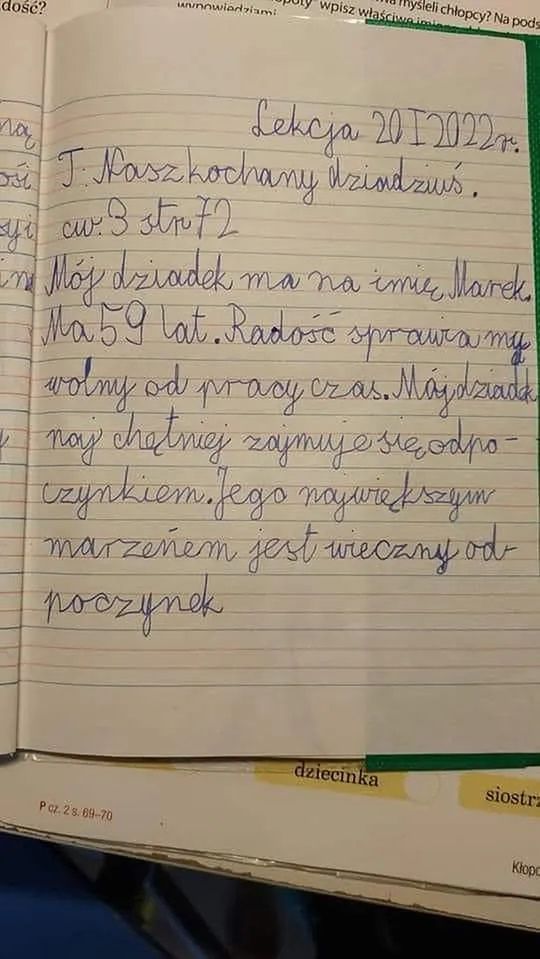 dość?
myśleli chłopcy? Na pods
wpisz właściwe
wypowiedziami
Lekcja 20 I 2022r.
T: Nasz kochany dziadziuś.
ćw. 3 str 72
Mój dziadek ma na imię Marek.
Ma 59 lat. Radość sprawia my
wolny od pracy czas. Mój dziadek
naj chętniej zajmuje się odpo-
czynkiem. Jego największym
marzeńem jest wieczny od-
poczynek
dziecinka
siostrz
P cz. 2 s. 69-70
Kłopo